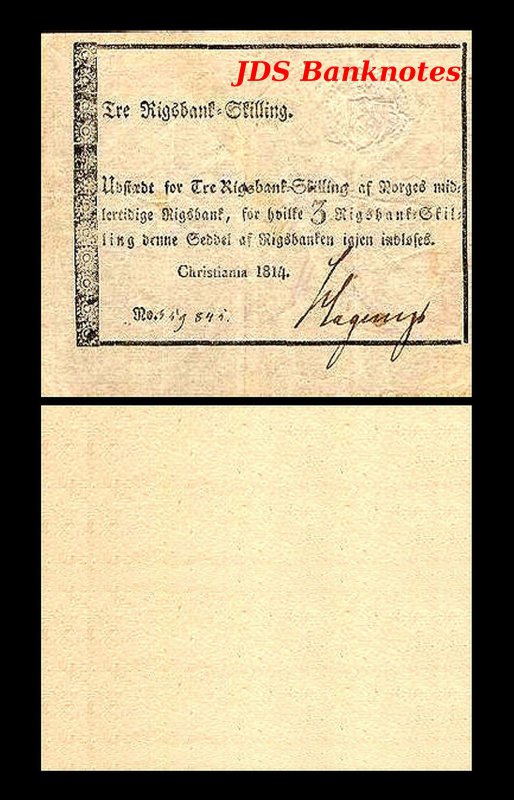 JDS Banknotes
Tre Rigsbank-Skilling.
Udstædt for Tre Rigsbank-Skilling af Norges mid-
lertidige Rigsbank, for hvilke 3 Rigsbank-Skil-
ling denne Seddel af Rigsbanken igjen indløses.
Christiania 1814.
No.